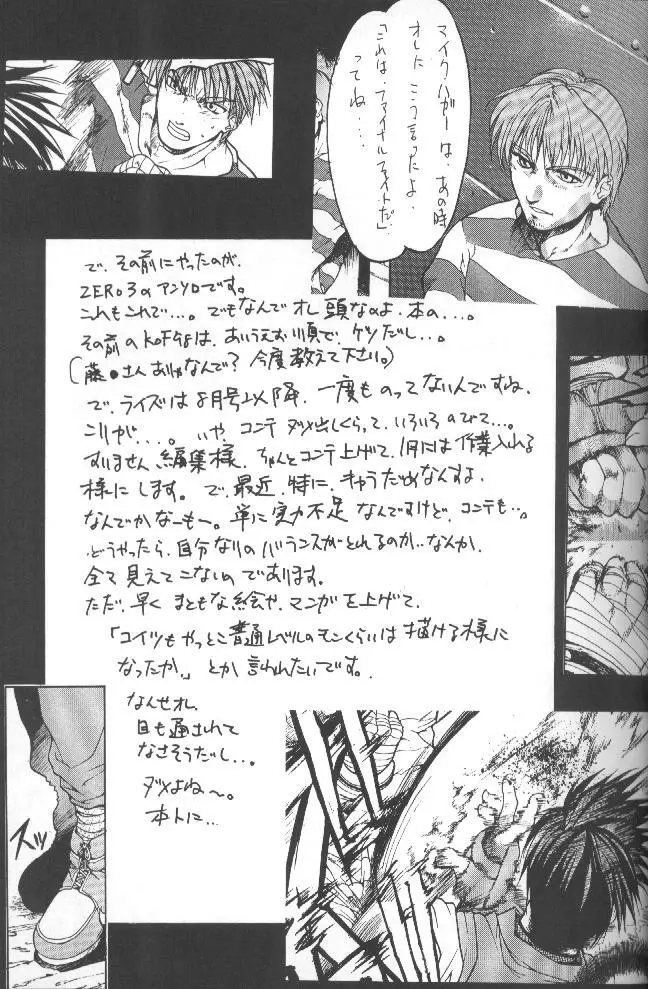 マイク・ハガーは、あの時
オレにこう言ったよ、
「これは、ファイナルファイトだ」
ってね・・・
で、その前にやったのが、
ZERO3のアンソロです。
これもこれで…。でもなんでオレ頭なのよ、本の…。
その前のKOF98は、あいうえお順で、ケツだし…。
(藤●さんありゃなんで?今度教えて下さい。)
で、ライズは8月号以降、一度ものってないんですね、
こりゃが…。いや、コンテ ダメ出しくらって、いろいろのびて…。
すいません、編集様、ちゃんとコンテ上げて、1月には作業入れる
様にします。で、最近、特に、キャラだめなんすよ、
なんでかなーもー。単に実力不足なんですけど、コンテも…。
どうやったら、自分なりのバランスがとれるのか…なんか、
全て見えてこないのであります。
ただ、早く まともな絵や、マンガを上げて、
「コイツもやっとこ普通レベルのモンくらいは描ける様に
なったか。」とか言われたいです。
なんせオレ、
目も通されて
なさそうだし…。
ダメよね～。
本トに…
スッ